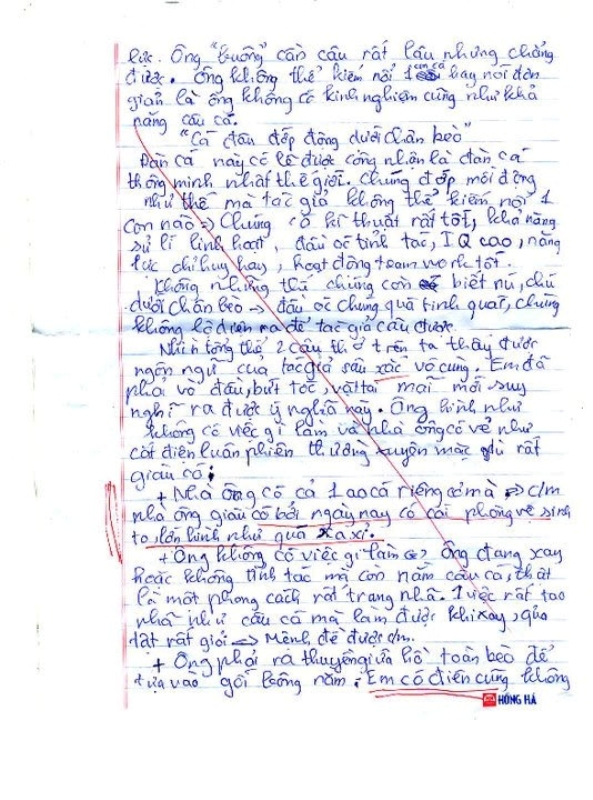 lực. Ông "buông" cần câu rất lâu nhưng chẳng
được. Ông không thể kiếm nổi 1 con cá hay nói đơn
giản là ông không có kinh nghiệm cũng như khả
năng câu cá.
"Cá đâu đớp động dưới chân bèo"
Đàn cá này có lẽ được công nhận là đàn cá
thông minh nhất thế giới. Chúng đớp mồi động
như thế mà tác giả không thể kiếm nổi 1
con nào => Chúng có kĩ thuật rất tốt, khả năng
sử lí linh hoạt, đầu óc tỉnh táo, IQ cao, năng
lực chỉ huy hay, hoạt động team work tốt.
Không những thế chúng còn biết núp
dưới chân bèo -> đầu óc chúng quá tinh quái, chúng
không lộ diện ra để tác giả câu được.
Nhìn tổng thể 2 câu thơ trên ta thấy được
ngôn ngữ của tác giả sâu xác vô cùng. Em đã
phải vò đầu, bứt tóc, vặt tai mãi mới suy
nghĩ ra được ý nghĩa này. Ông hình như
không có việc gì làm và nhà ông có vẻ như
cắt điện luân phiên thường xuyên mặc dù rất
giàu có:
+ Nhà ông có cả 1 ao cá riêng cơ mà => c/m
nhà ông giàu có bởi ngày nay có cái phòng vệ sinh
to, lớn hình như quá xa xỉ.
+ Ông không có việc gì làm ông đang say
hoặc không tỉnh táo mà còn nằm câu cá, thật
là một phong cách rất trang nhã. 1 việc rất tao
nhã như câu cá mà làm được khi xay, quả
thật rất giỏi => Mệnh đề được c/m.
+ Ông phải ra thuyền giữa hồ toàn bèo để
tựa vào gối buông nằm. Em có điên cũng không
HỒNG HÀ